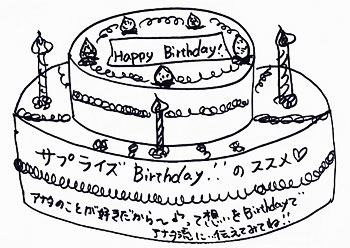 Happy Birthday!
サプライズ Birthday!! のススメ♡
アナタのことが好きだから〜♪って想いをBirthdayで
アナタ流に…伝えてみてね!!